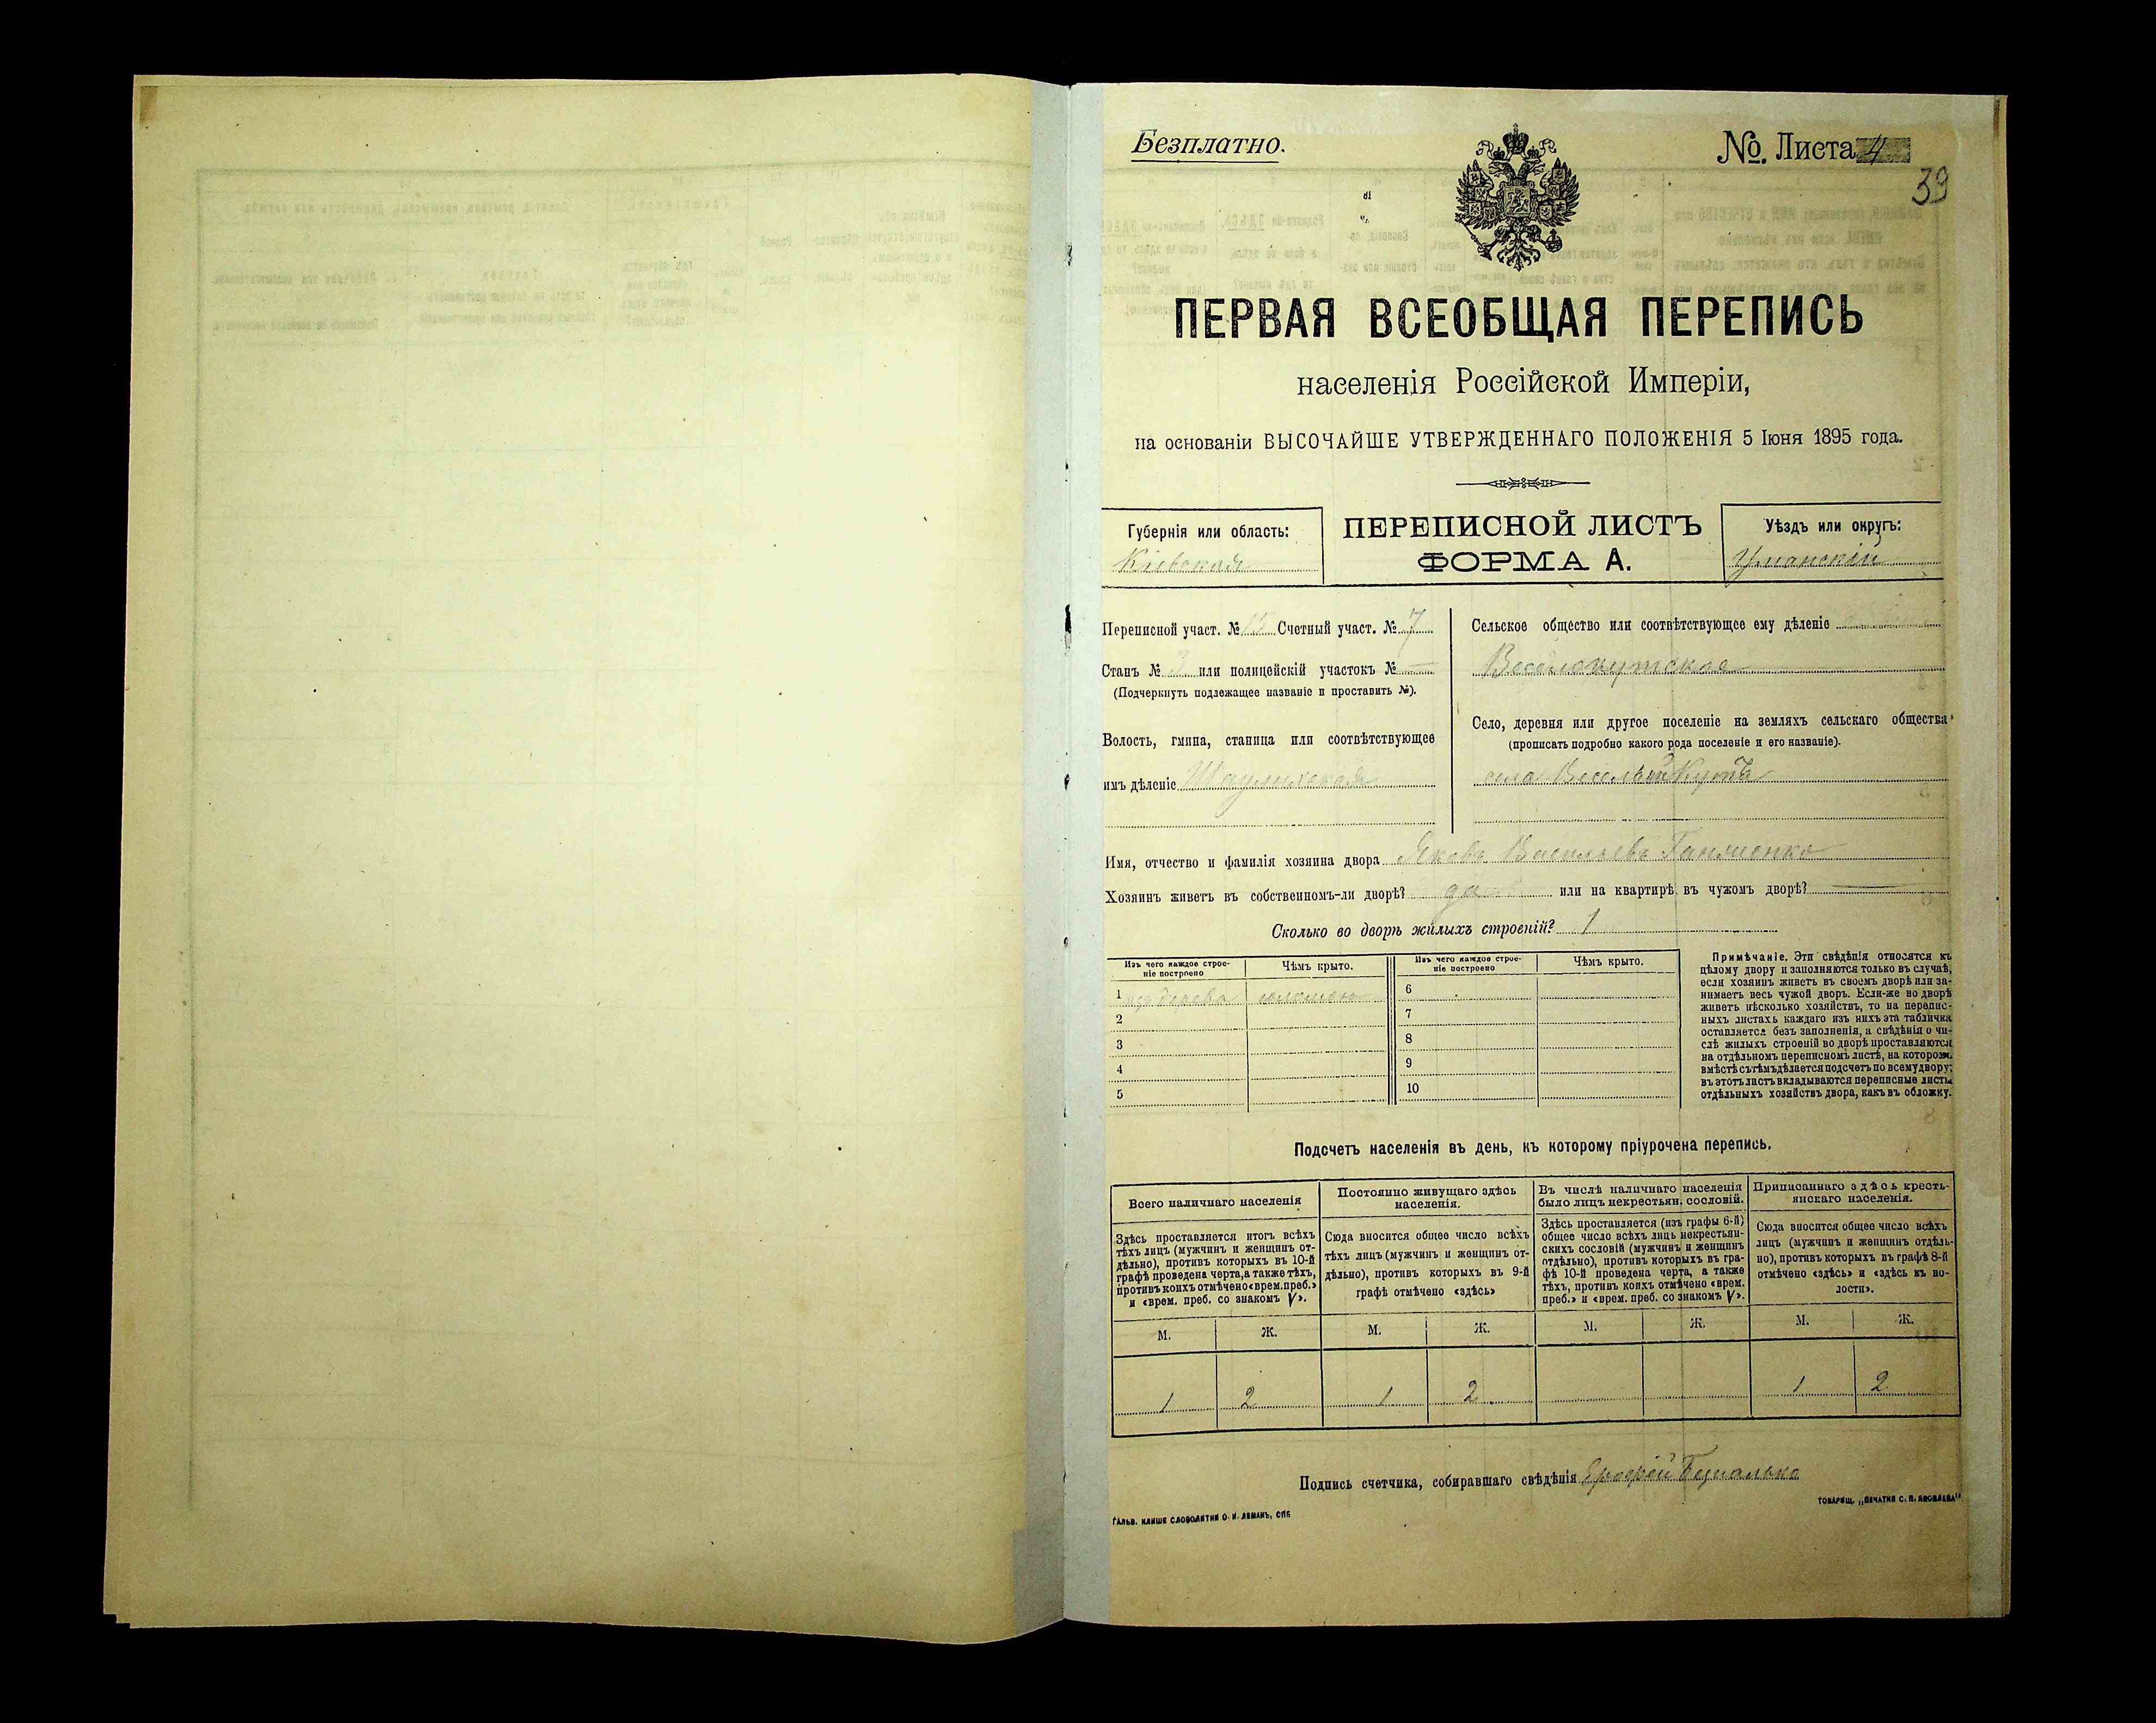 Безплатно.
№. Листа 4
39
ПЕРВАЯ ВСЕОБЩАЯ ПЕРЕПИСЬ
населенія Россійской Имперіи,
на основаніи ВЫСОЧАЙШЕ УТВЕРЖДЕННАГО ПОЛОЖЕНІЯ 5 Іюня 1895 года.
Губернія или область:
Кіевская
ПЕРЕПИСНОЙ ЛИСТЪ
ФОРМА А.
Уѣздъ или округъ:
Уманскій
Переписной участ. № 15 Счетный участ. № 7
Станъ № 3 или полицейскій участокъ № —
(Подчеркнуть подлежащее названіе и проставить №).
Волость, гмина, станица или соотвѣтствующее
имъ дѣленіе Шаулихская
Сельское общество или соотвѣтствующее ему дѣленіе
Веселокутское
Село, деревня или другое поселеніе на земляхъ сельскаго общества
(прописать подробно какого рода поселеніе и его названіе).
село Веселый Кутъ
Имя, отчество и фамилія хозяина двора Яковъ Васильевъ
Хозяинъ живетъ въ собственномъ-ли дворѣ? да или на квартирѣ въ чужомъ дворѣ? —
Сколько во дворѣ жилыхъ строеній? 1
Изъ чего каждое строе-
ніе построено
Чѣмъ крыто.
1 изъ дерева соломою
2
3
4
5
Изъ чего каждое строе-
ніе построено
Чѣмъ крыто.
6
7
8
9
10
Примѣчаніе. Эти свѣдѣнія относятся къ
цѣлому двору и заполняются только въ случаѣ,
если хозяинъ живетъ въ своемъ дворѣ или за-
нимаетъ весь чужой дворъ. Если-же во дворѣ
живетъ нѣсколько хозяйствъ, то на перепис-
ныхъ листахъ каждаго изъ нихъ эта табличка
оставляется безъ заполненія, а свѣдѣнія о чи-
слѣ жилыхъ строеній во дворѣ проставляются
на отдѣльномъ переписномъ листѣ, на которомъ
вмѣстѣ съ тѣмъ дѣлается подсчетъ по всему двору;
въ этотъ листъ вкладываются переписные листы
отдѣльныхъ хозяйствъ двора, какъ въ обложку.
Подсчетъ населенія въ день, къ которому пріурочена перепись.
Всего наличнаго населенія
Здѣсь проставляется итогъ всѣхъ
тѣхъ лицъ (мужчинъ и женщинъ от-
дѣльно), противъ которыхъ въ 10-й
графѣ проведена черта, а также тѣхъ,
противъ коихъ отмѣчено «врем. преб.»
и «врем. преб. со знакомъ V».
Постоянно живущаго здѣсь
населенія.
Сюда вносится общее число всѣхъ
тѣхъ лицъ (мужчинъ и женщинъ от-
дѣльно), противъ которыхъ въ 9-й
графѣ отмѣчено «здѣсь»
Въ числѣ наличнаго населенія
было лицъ некрестьян. сословій.
Здѣсь проставляется (изъ графы 6-й)
общее число всѣхъ лицъ некрестьян-
скихъ сословій (мужчинъ и женщинъ
отдѣльно), противъ которыхъ въ гра-
фѣ 10-й проведена черта, а также
тѣхъ, противъ коихъ отмѣчено «врем.
преб.» и «врем. преб. со знакомъ V».
Приписаннаго здѣсь кресть-
янскаго населенія.
Сюда вносится общее число всѣхъ
лицъ (мужчинъ и женщинъ отдѣль-
но), противъ которыхъ въ графѣ 8-й
отмѣчено «здѣсь» и «здѣсь къ во-
лости».
М. Ж. М. Ж. М. Ж. М. Ж.
1 2 1 2 1 2
Подпись счетчика, собиравшаго свѣдѣнія
ГАЛЬВ. КЛИШЕ СЛОВОЛИТНИ О. И. ЛЕМАНЪ, СПБ
ТОВАРИЩ. „ПЕЧАТНЯ С. П. ЯКОВЛЕВА"